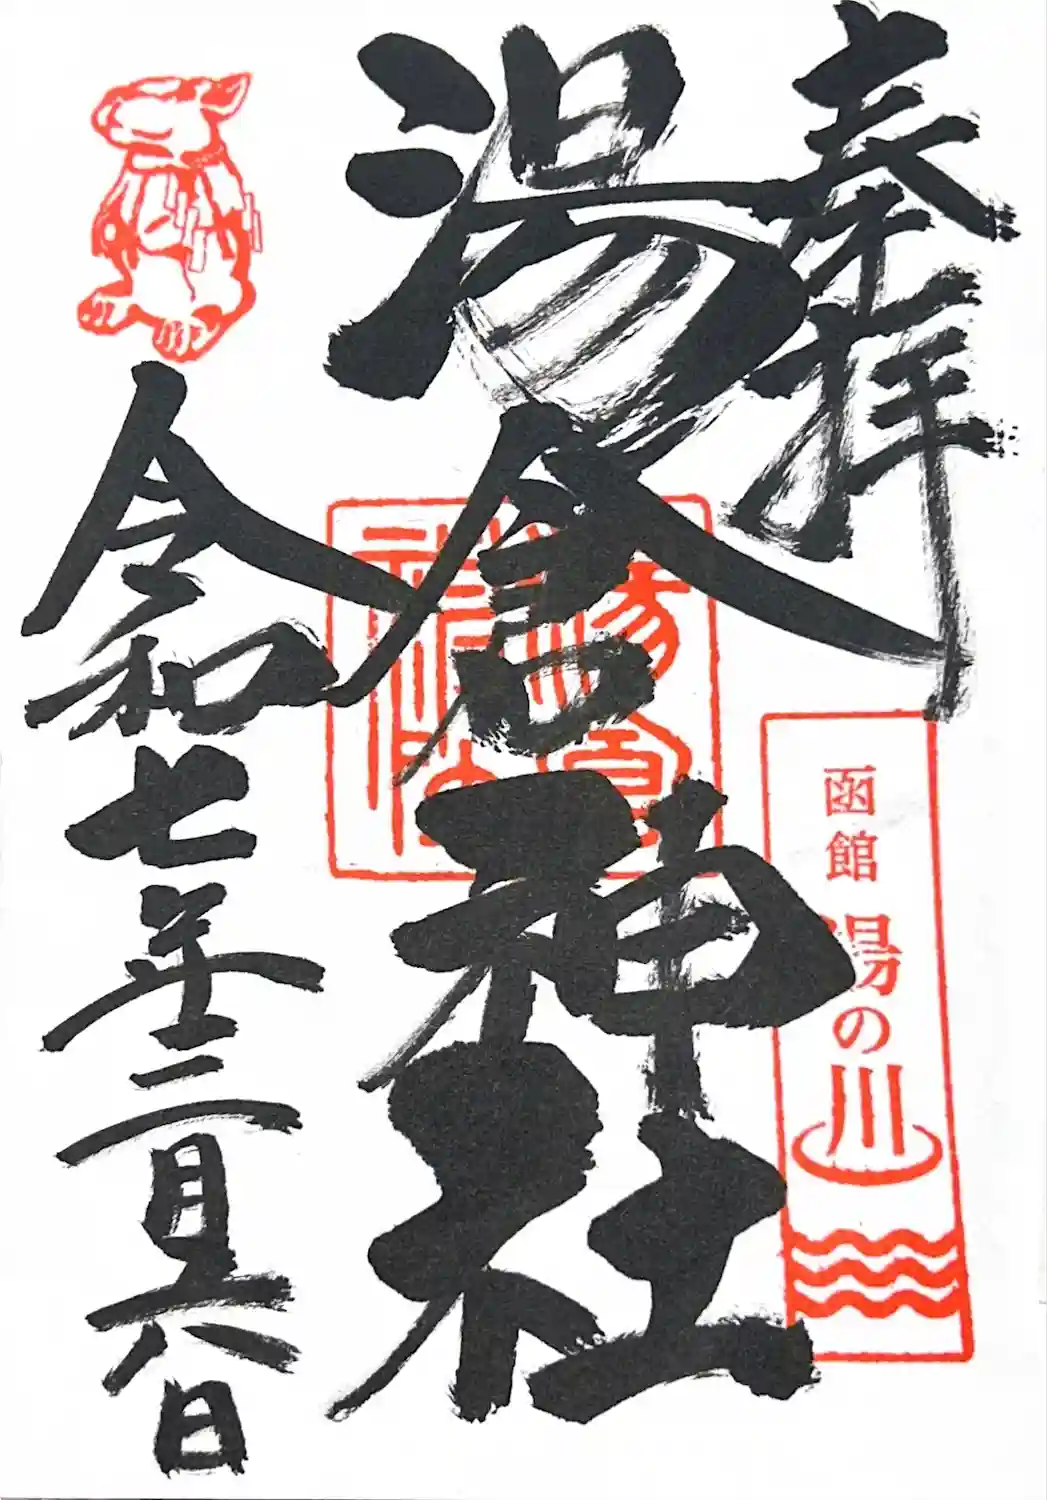 奉拝
函館 湯の川
湯倉神社
湯倉
神社
令和七年三月六日